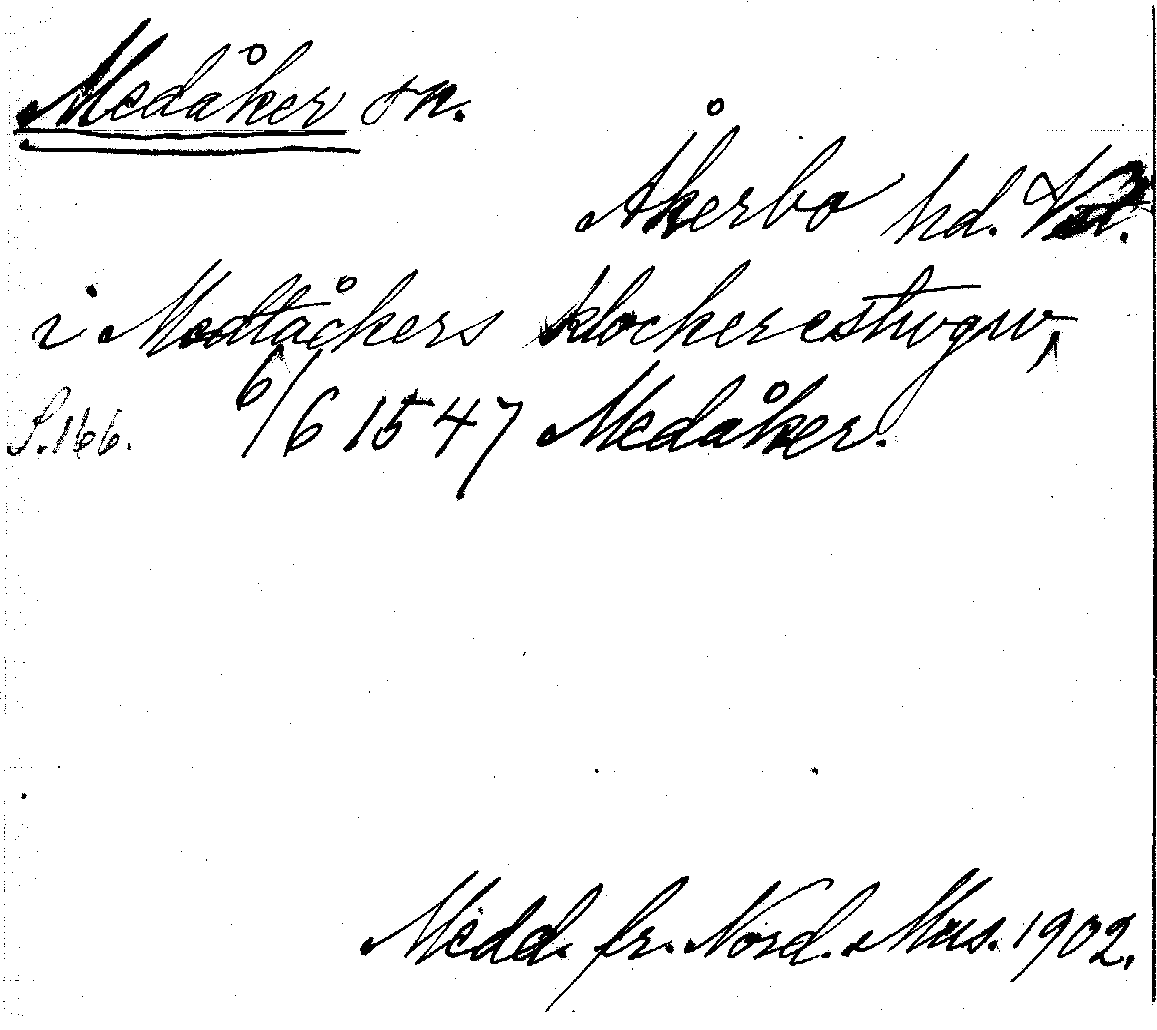 Medåker sn.
Åkerbo hd.
i Medtåckers klockerestugw,
S. 166. 6/6 1547 Medåker.
Medd. fr. Nord. Mus. 1902.